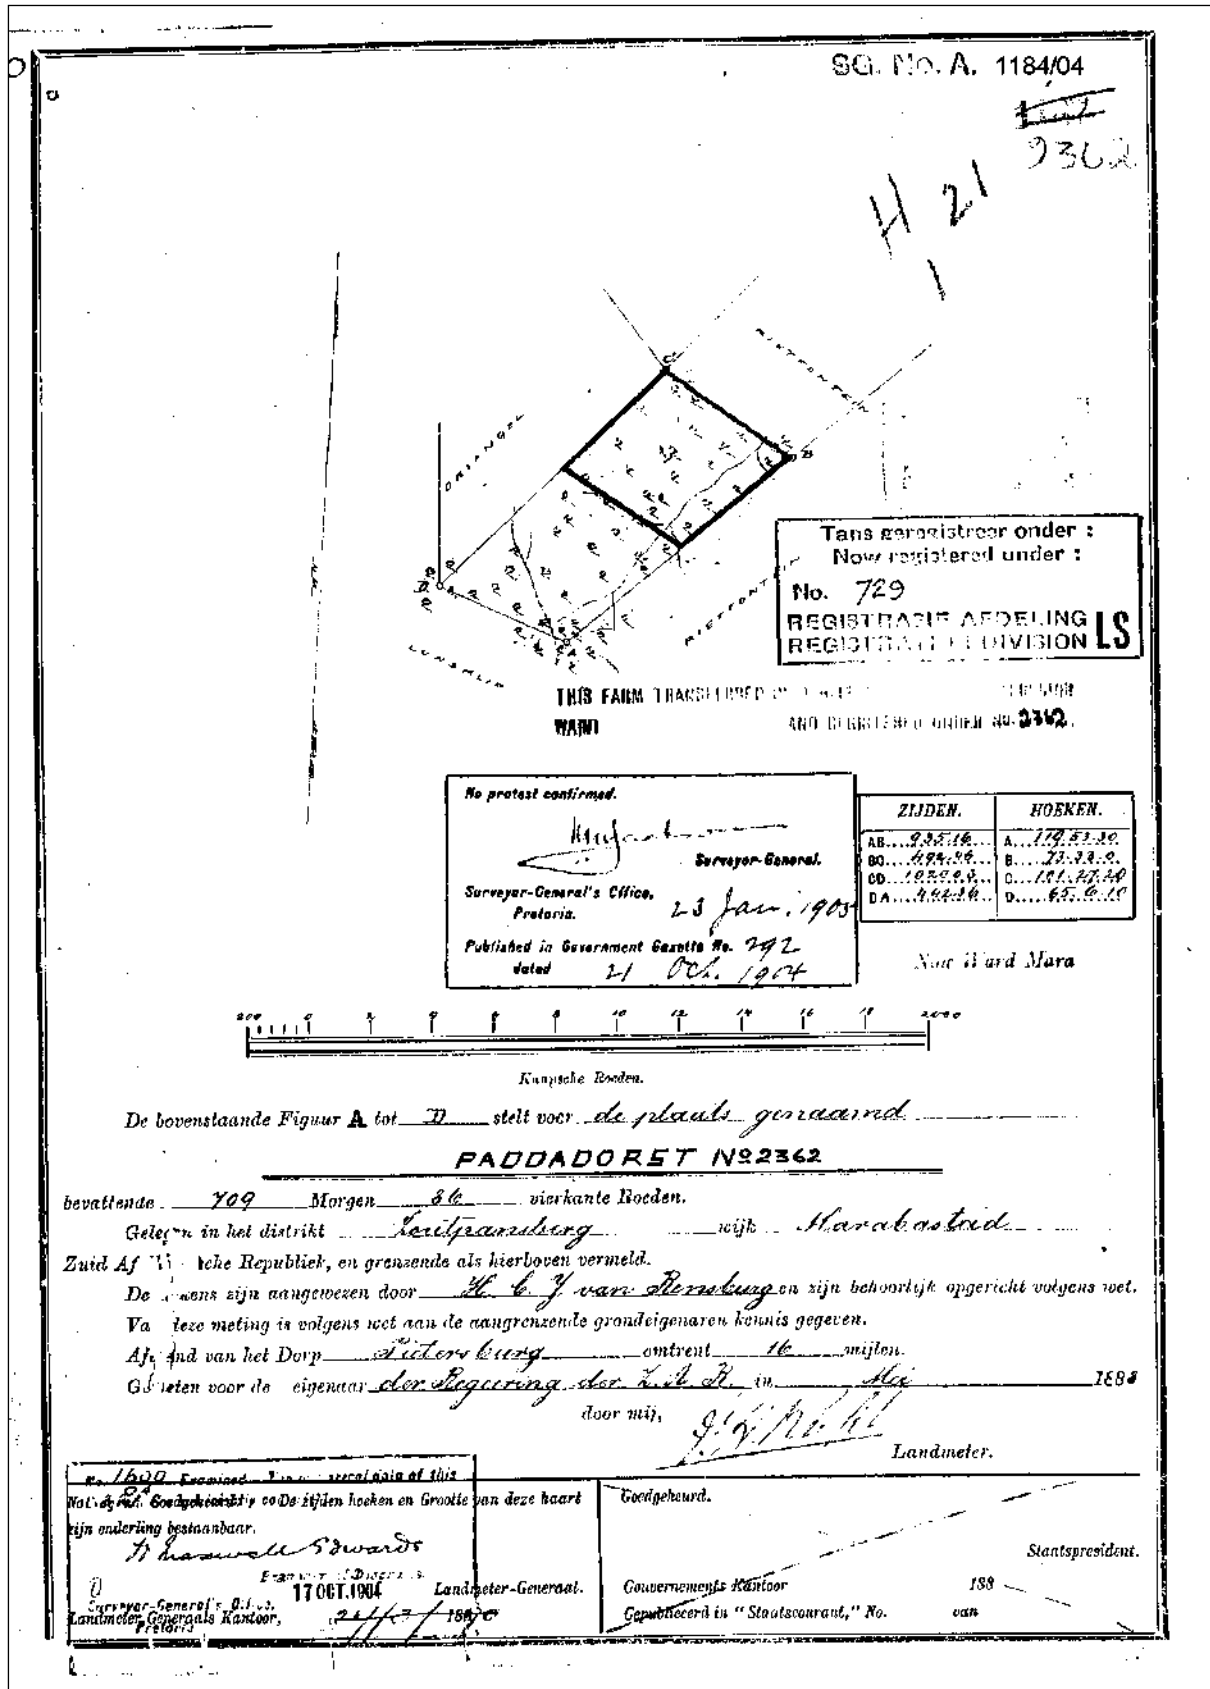 SG. No. A. 1184/04
9362
H 21
1
C
RIETFONTEIN
B
DRIANGEL
D
RIETFONTEIN
A
Tans geregistreer onder :
Now registered under :
No. 729
REGISTRASIE AFDELING
REGISTRATION DIVISION LS
THIS FARM TRANSFERRED
WARD AND REGISTERED UNDER No. 2362.
No protest confirmed.
Surveyor-General.
Surveyor-General's Office,
Pretoria. 23 Jan. 1905
Published in Government Gazette No. 292
dated 21 Oct. 1904
ZIJDEN. HOEKEN.
AB 935.16 A 119.53.30
BC B 73.33.0
CD C 101.27.20
DA 442.36 D 65.6.10
Now Ward Mara
200 0 2 4 6 8 10 12 14 16 18 2000
Kaapsche Roeden.
De bovenstaande Figuur A tot D stelt voor de plaats genaamd
PADDADORST No 2362
bevattende 709 Morgen 86 vierkante Roeden.
Gelegen in het distrikt Zoutpansberg wijk Marabastad
Zuid Af che Republiek, en grenzende als hierboven vermeld.
De kens zijn aangewezen door H. C. J. van Rensburg en zijn behoorlijk opgericht volgens wet.
Va deze meting is volgens wet aan de aangrenzende grondeigenaren kennis gegeven.
Af and van het Dorp Pietersburg omtrent 16 mijlen.
G meten voor de eigenaar der Regeering der Z. A. R. in Mei 1888
door mij,
Landmeter.
No. 1600 Examined of this
De zijden hoeken en Grootte van deze kaart
zijn onderling bestaanbaar.
Maxwell Edwards
Examiner of Diagrams
17 OCT. 1904 Landmeter-Generaal.
Surveyor-General's Office,
Landmeter Generaals Kantoor,
Pretoria
Goedgekeurd.
Staatspresident.
Gouvernements Kantoor 188
Gepubliceerd in "Staatscourant," No. van